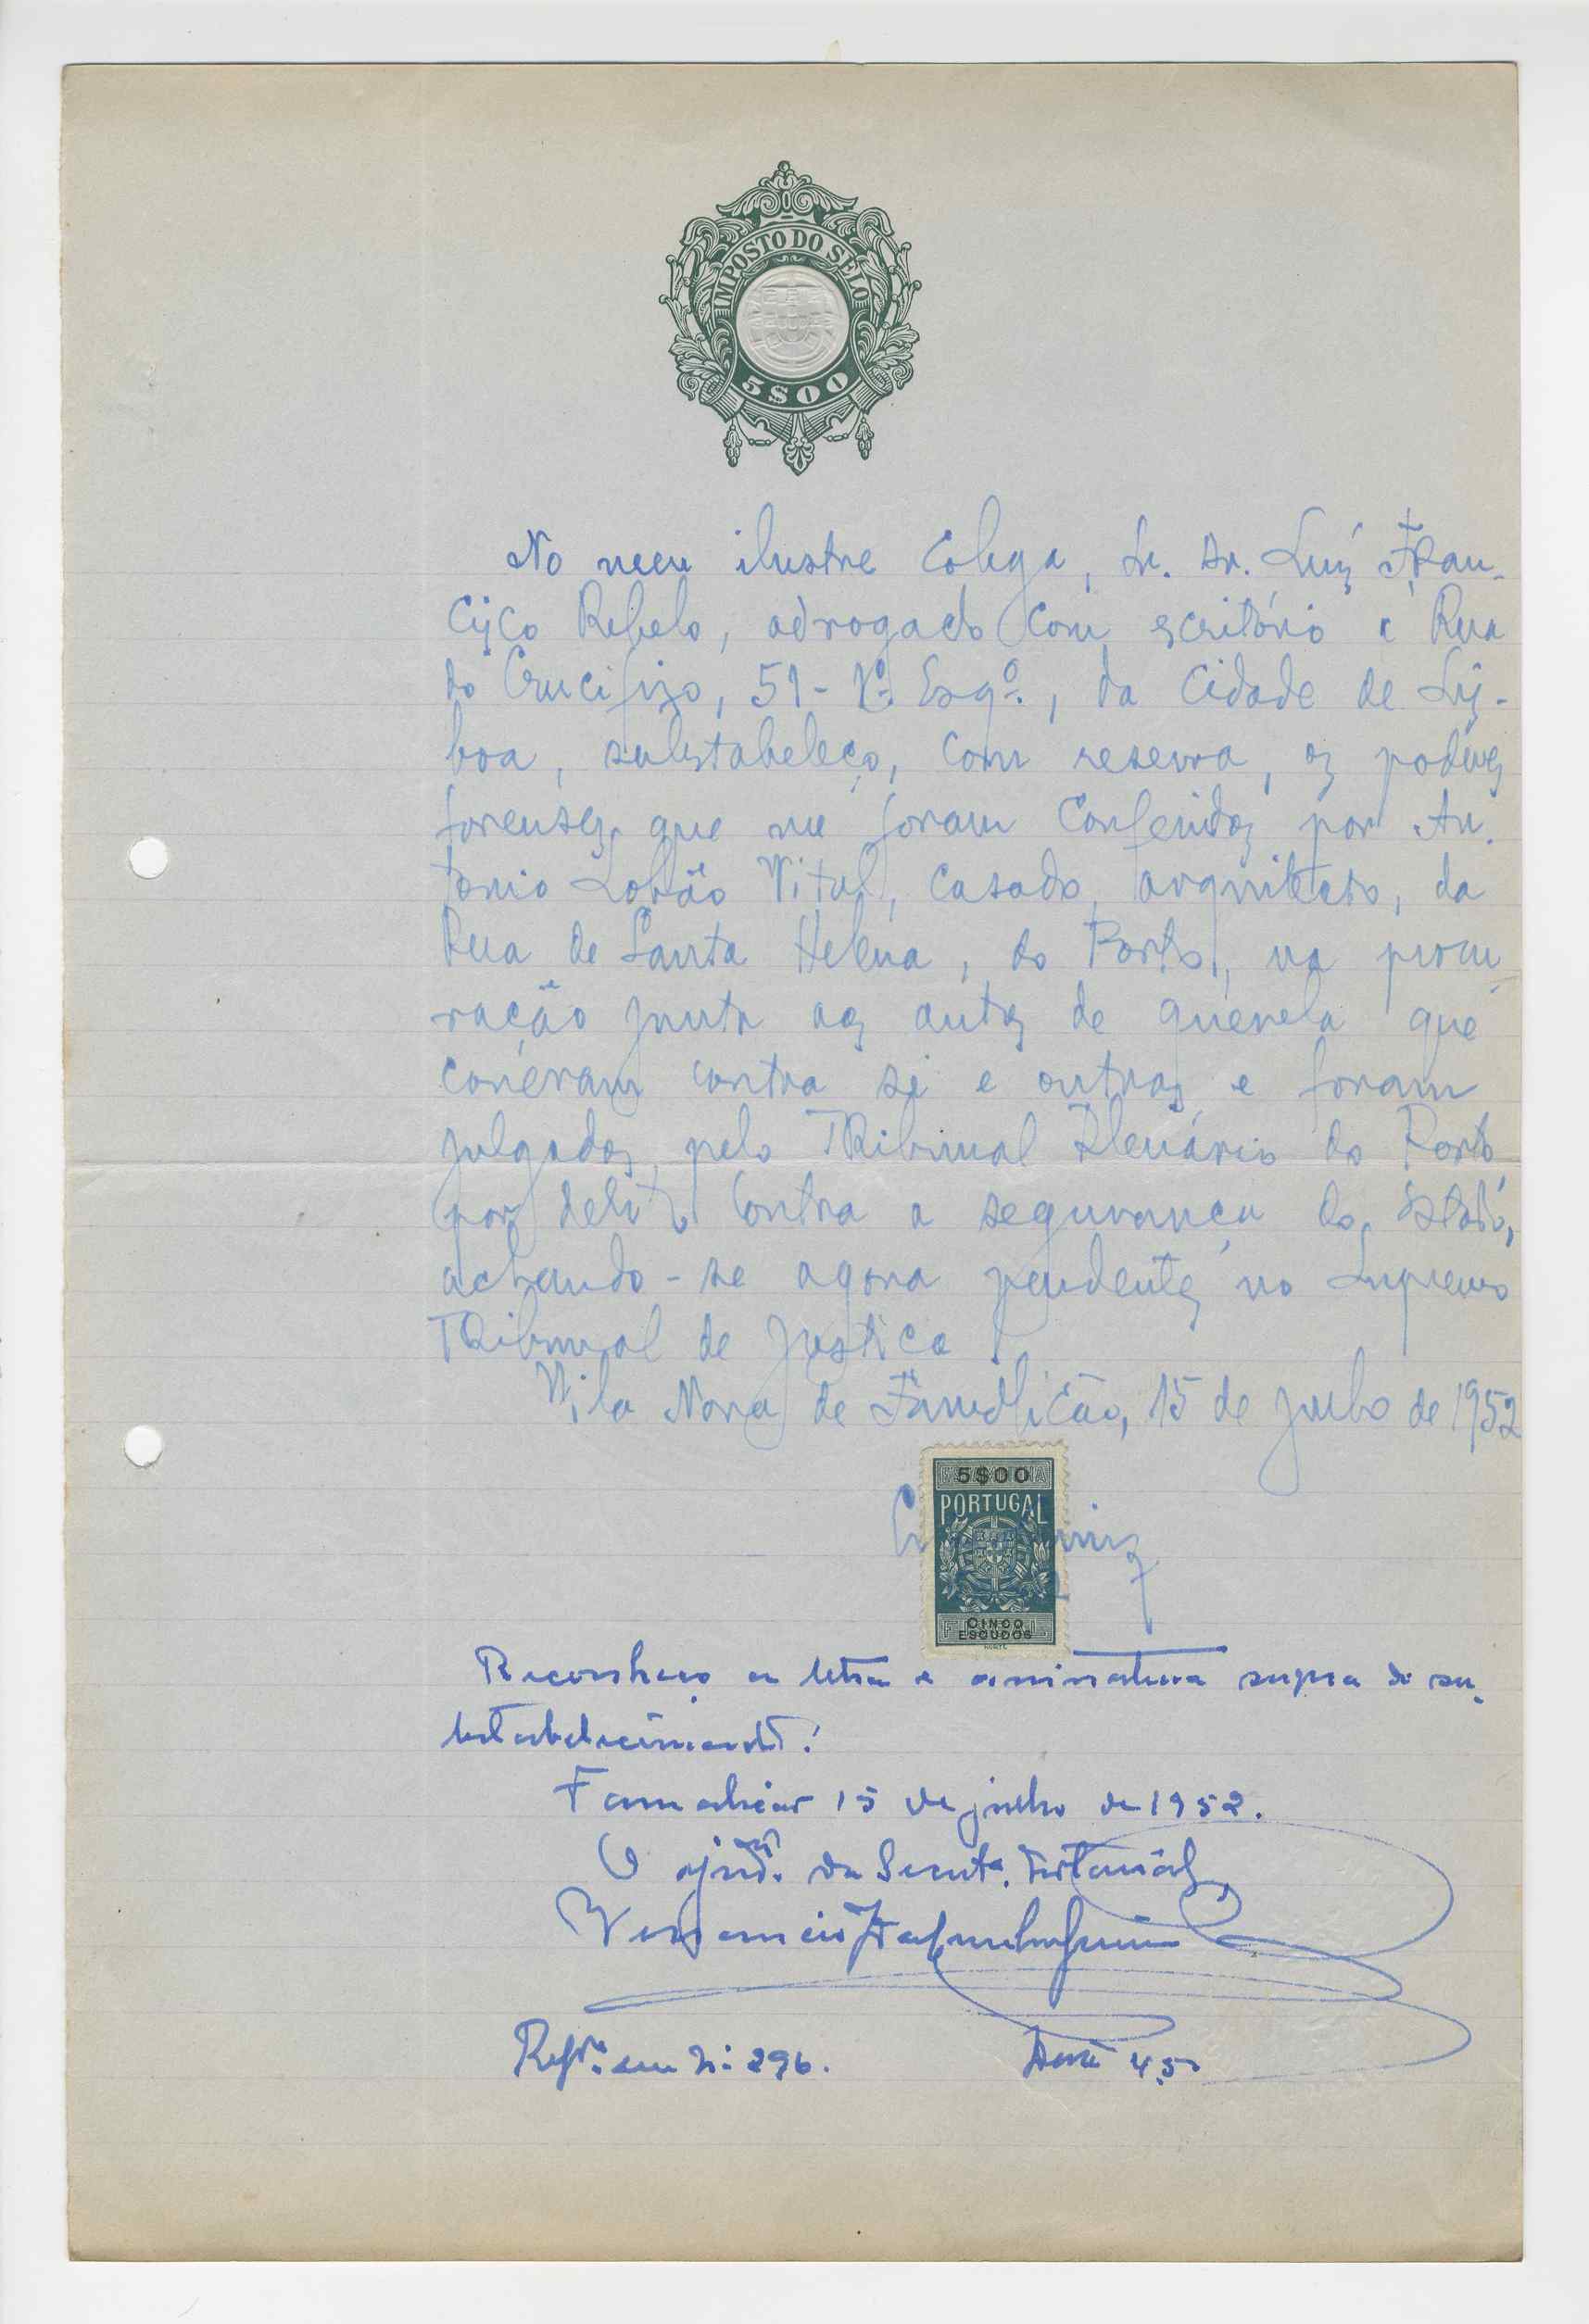 IMPOSTO DO SELO
5$00
No meu ilustre Colega, Sr. Dr. Luiz Fran-
cisco Rebelo, advogado com escritório à Rua
do Crucifixo, 51- Esqº., da cidade de Lis-
boa, substabeleço, com reserva, os poderes
forenses que me foram conferidos por An-
tonio Lobão Vital, casado, arquitecto, da
Rua de Santa Helena, do Porto, na procu-
ração junta aos autos de querela que
correram contra si e outros e foram
julgados pelo Tribunal Plenário do Porto
por delitos contra a segurança do Estado,
achando-se agora pendentes no Supremo
Tribunal de Justiça
Vila Nova de Famalicão, 15 de julho de 1952
5$00
PORTUGAL
CINCO
ESCUDOS
Reconheço a letra e assinatura supra do su-
bstabelecimento.
Famalicão 15 de julho de 1952.
O ajudº. da Secretª. Notarial,
Regº. sem nº: 296.